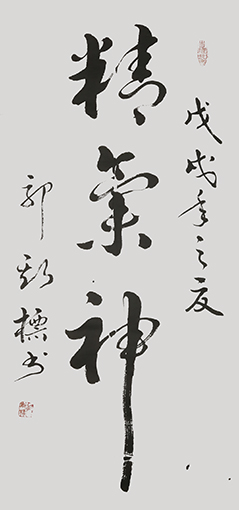 精氣神
戊戌年之夏
郭彭標書